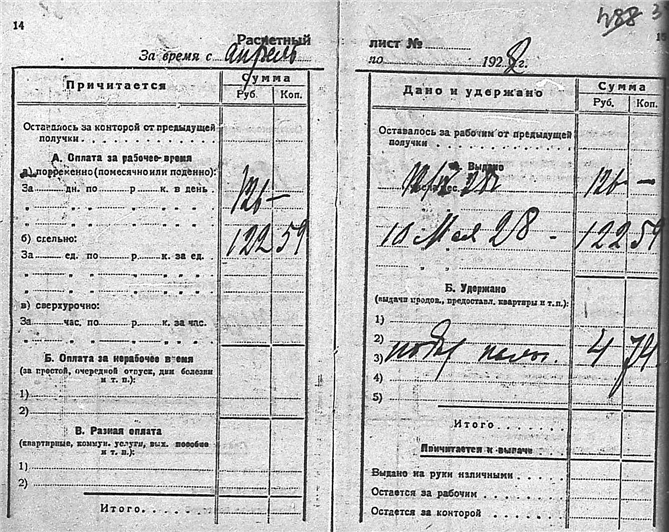 14
Расчетный
За время с апрель
Причитается
Сумма
Руб. Коп.
Оставалось за конторой от предыдущей
получки
А. Оплата за рабочее время
а) поврекенно (помесячно или поденно):
За дн. по р к. в день
126 —
" " " " " "
" " " " " "
б) сдельно:
122 59
За ед. по р к. за ед.
" " " " " "
" " " " " "
в) сверхурочно:
За час. по р к. за час.
" " " " " "
Б. Оплата за нерабочее время
(за простой, очередной отпуск, дни болезни
и т. п.):
1)
2)
В. Разная оплата
(квартирные, коммун. услуги, вых. пособие
и т. п.):
1)
2)
Итого
488 3
лист №
по 1928 г.
Дано и удержано
Сумма
Руб. Коп.
Оставалось за рабочим от предыдущей
получки
А. Выдано
28 126 —
10 Мая 28 - 122 59
Б. Удержано
(выдачи продов., предоставл. квартиры и т.п.):
1)
2)
3) 4 74
4)
5)
Итого
Причитается к выдаче
Выдано на руки наличными
Остается за рабочим
Остается за конторой